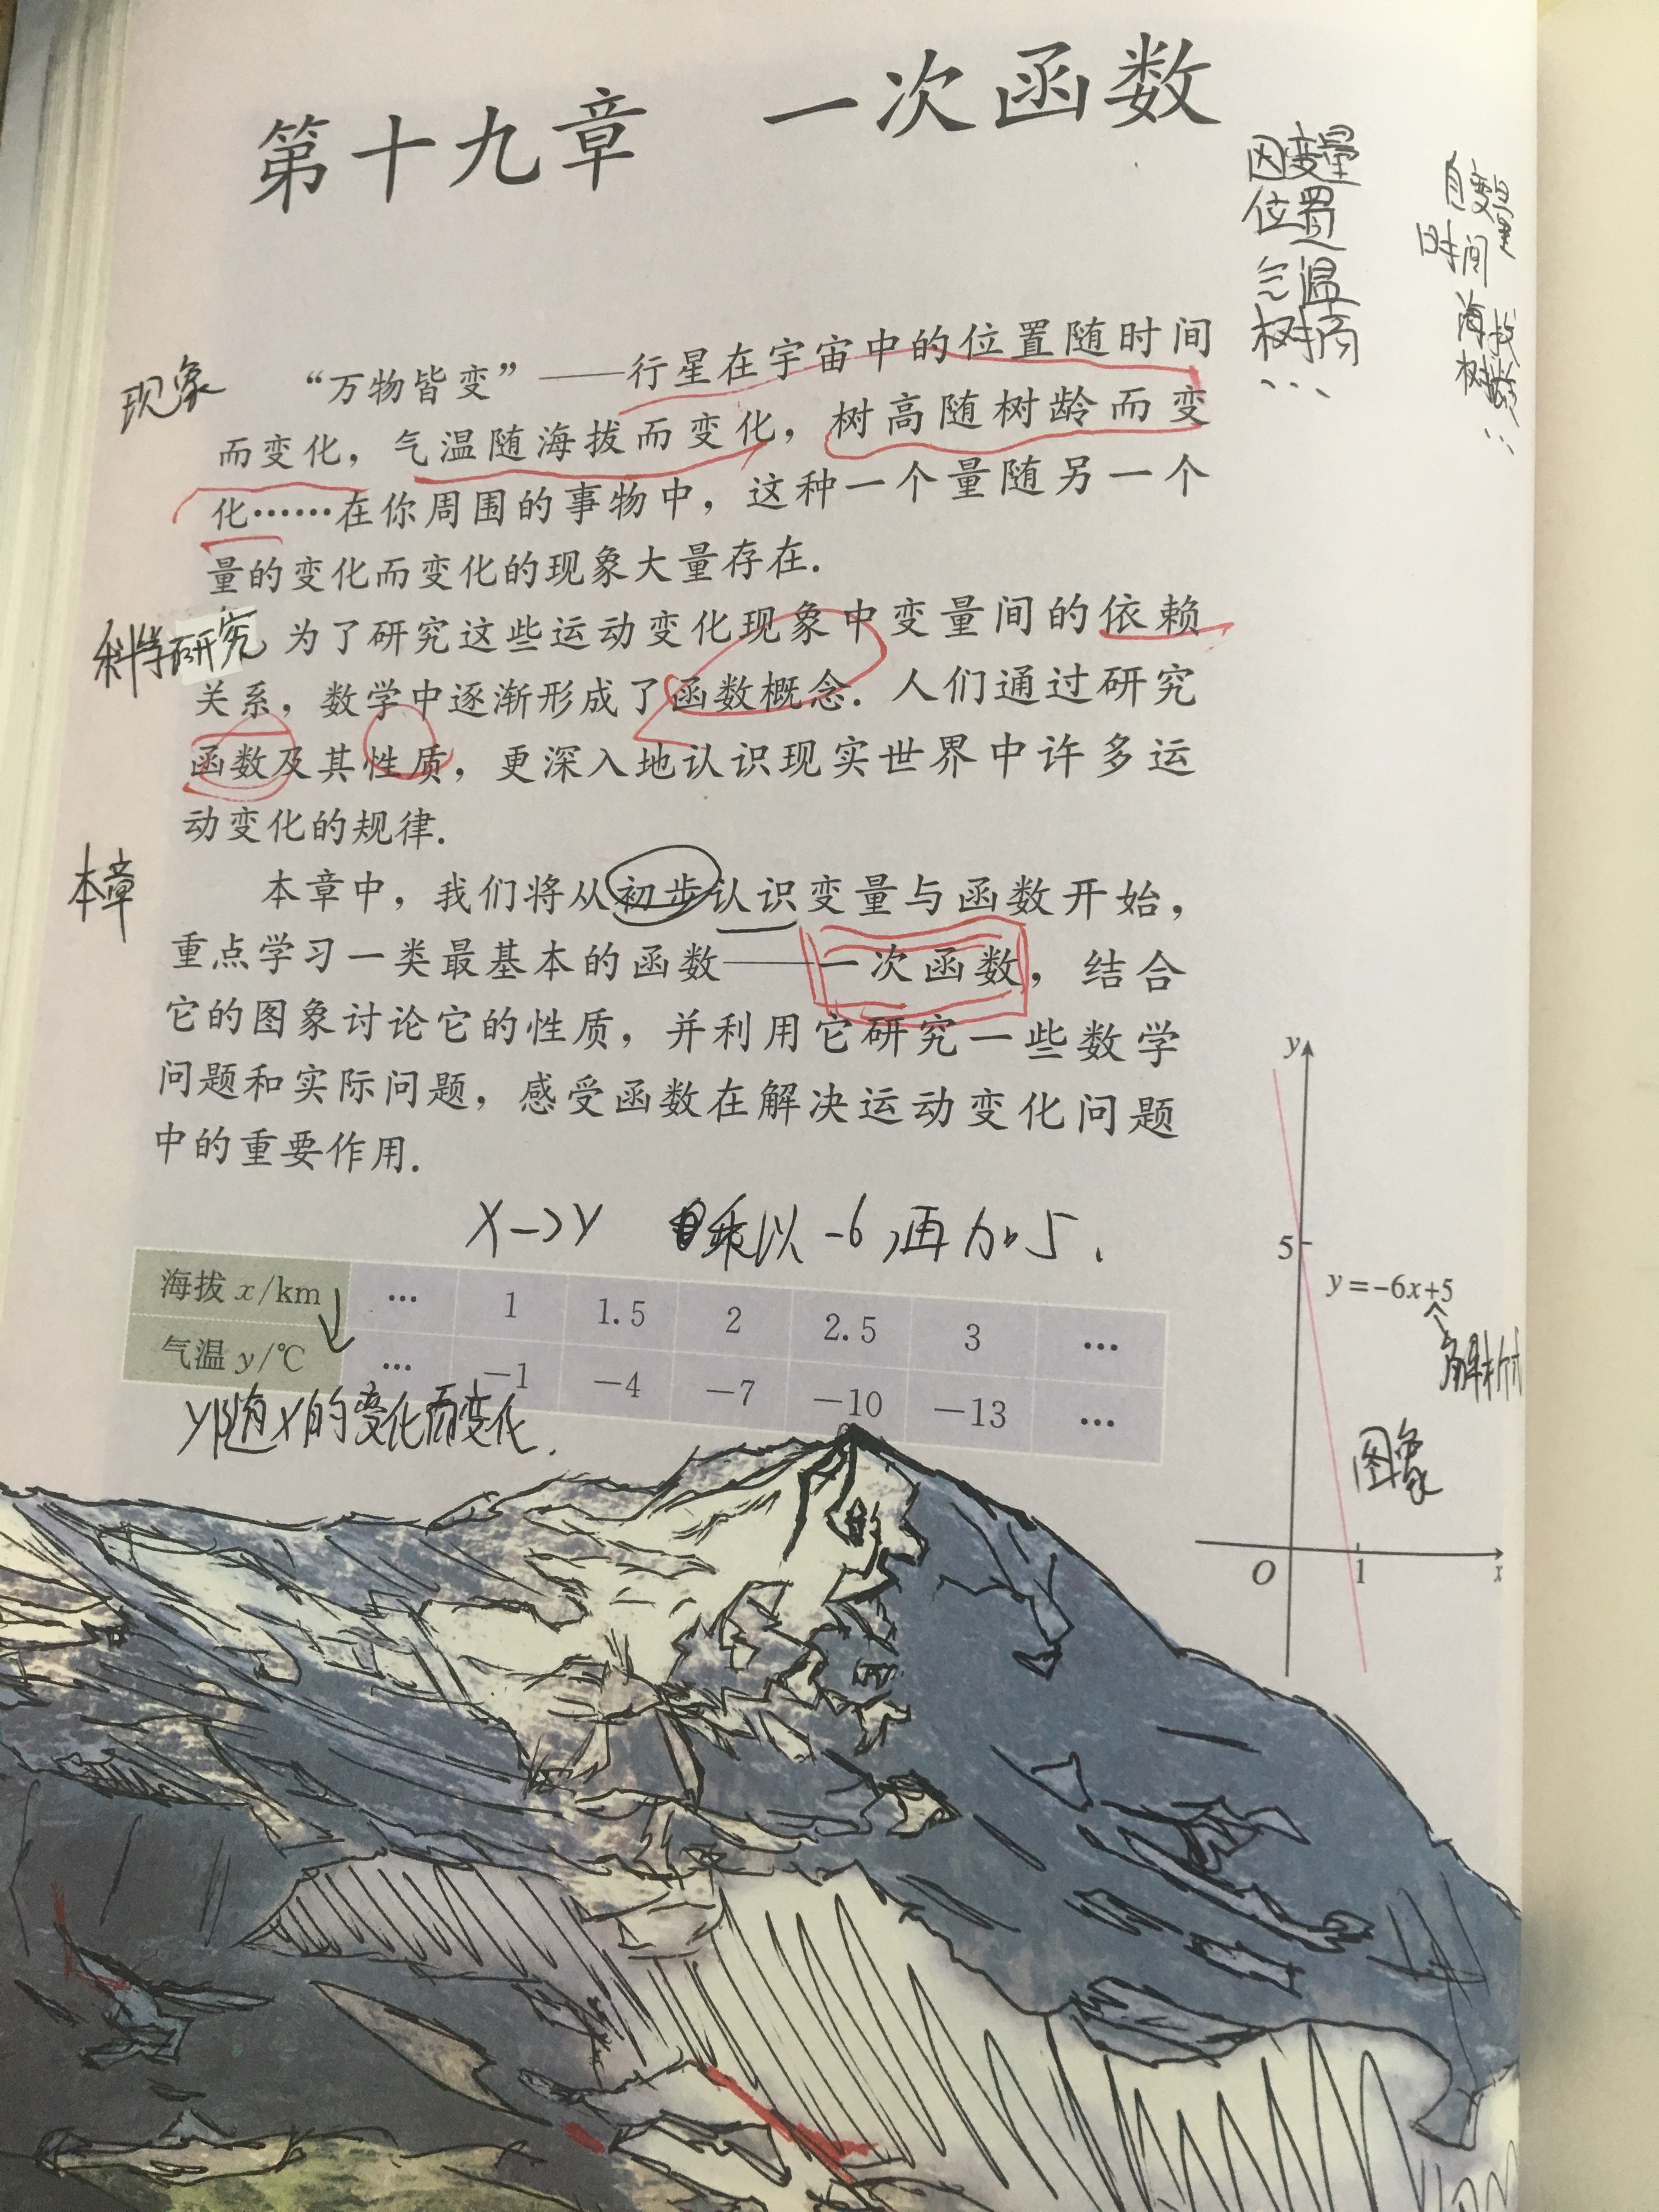 第十九章 一次函数
因变量
位置
气温
树高
...
自变量
时间
海拔
树龄
...
现象
“万物皆变”——行星在宇宙中的位置随时间
而变化，气温随海拔而变化，树高随树龄而变
化……在你周围的事物中，这种一个量随另一个
量的变化而变化的现象大量存在.
科学研究
为了研究这些运动变化现象中变量间的依赖
关系，数学中逐渐形成了函数概念. 人们通过研究
函数及其性质，更深入地认识现实世界中许多运
动变化的规律.
本章
本章中，我们将从初步认识变量与函数开始，
重点学习一类最基本的函数——一次函数，结合
它的图象讨论它的性质，并利用它研究一些数学
问题和实际问题，感受函数在解决运动变化问题
中的重要作用.
X->Y 乘以-6,再加5.
海拔 x/km … 1 1.5 2 2.5 3 …
气温 y/℃ … -1 -4 -7 -10 -13 …
y随x的变化而变化.
y
5
y=-6x+5
解析
图象
O 1 x